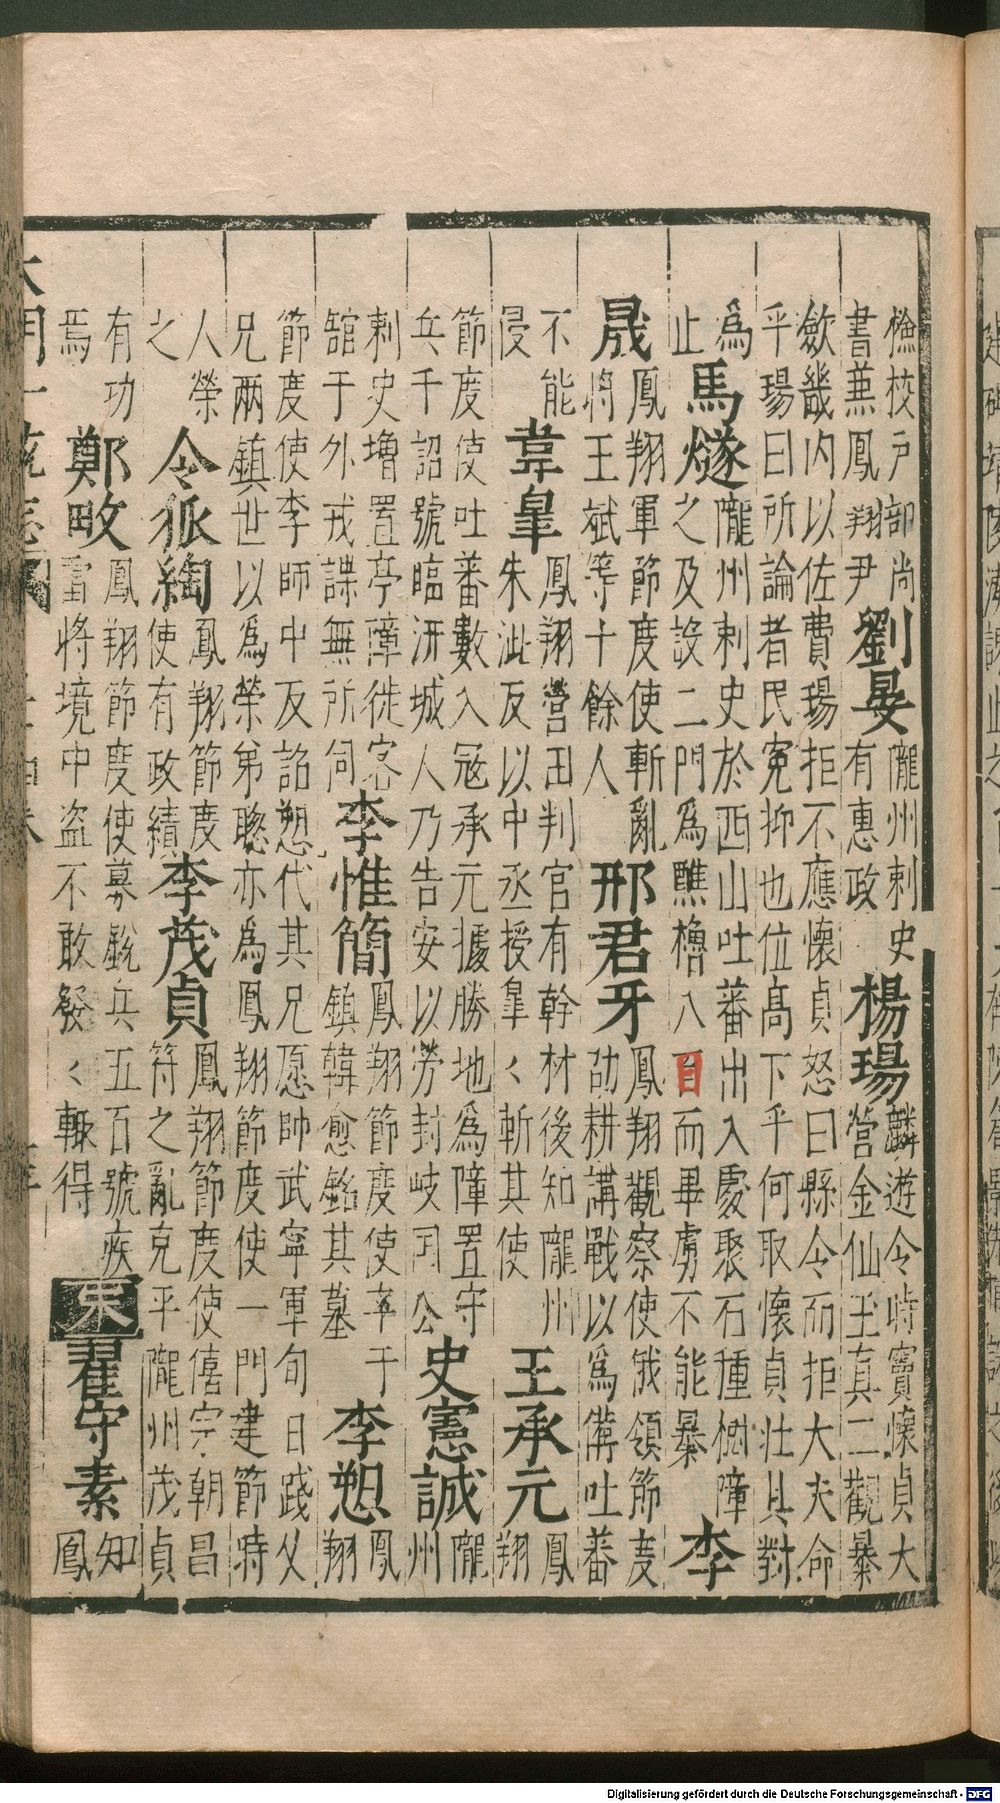 檢校戶部尚書兼鳳翔尹劉晏隴州刺史有惠政楊瑒麟遊令時竇懷貞大營金仙玉真二觀暴
歛畿內以佐費瑒拒不應懷貞怒曰縣令而拒大夫命乎瑒曰所論者民寃抑也位高下乎何取懷貞壯其對
為止馬燧隴州刺史於西山吐蕃出入處聚石種樹障之及設二門為譙櫓八日而畢虜不能暴李
晟鳳翔軍節度使斬亂將王斌等十餘人邢君牙鳳翔觀察使俄領節度劭耕講戰以為備吐蕃
不能侵韋臯鳳翔營田判官有幹材後知隴州朱泚反以中丞授臯〻斬其使王承元鳳翔
節度使吐蕃數入冦承元據勝地為障置守兵千詔號臨汧城人乃告安以勞封岐國公史憲誠隴州
刺史增置亭障徙客舘于外戎諜無所伺李惟簡鳳翔節度使卒于鎮韓愈銘其墓李愬鳳翔
節度使李師中反詔愬代其兄愿帥武寧軍旬日踐父兄兩鎮世以為榮弟聦亦為鳳翔節度使一門建節時
人榮之令狐綯鳳翔節度使有政績李茂貞鳳翔節度使僖宗朝昌符之亂克平隴州茂貞
有功焉鄭畋鳳翔節度使募銳兵五百號疾雷將境中盜不敢發〻輙得宋翟守素知鳳
Digitalisierung gefördert durch die Deutsche Forschungsgemeinschaft - DFG